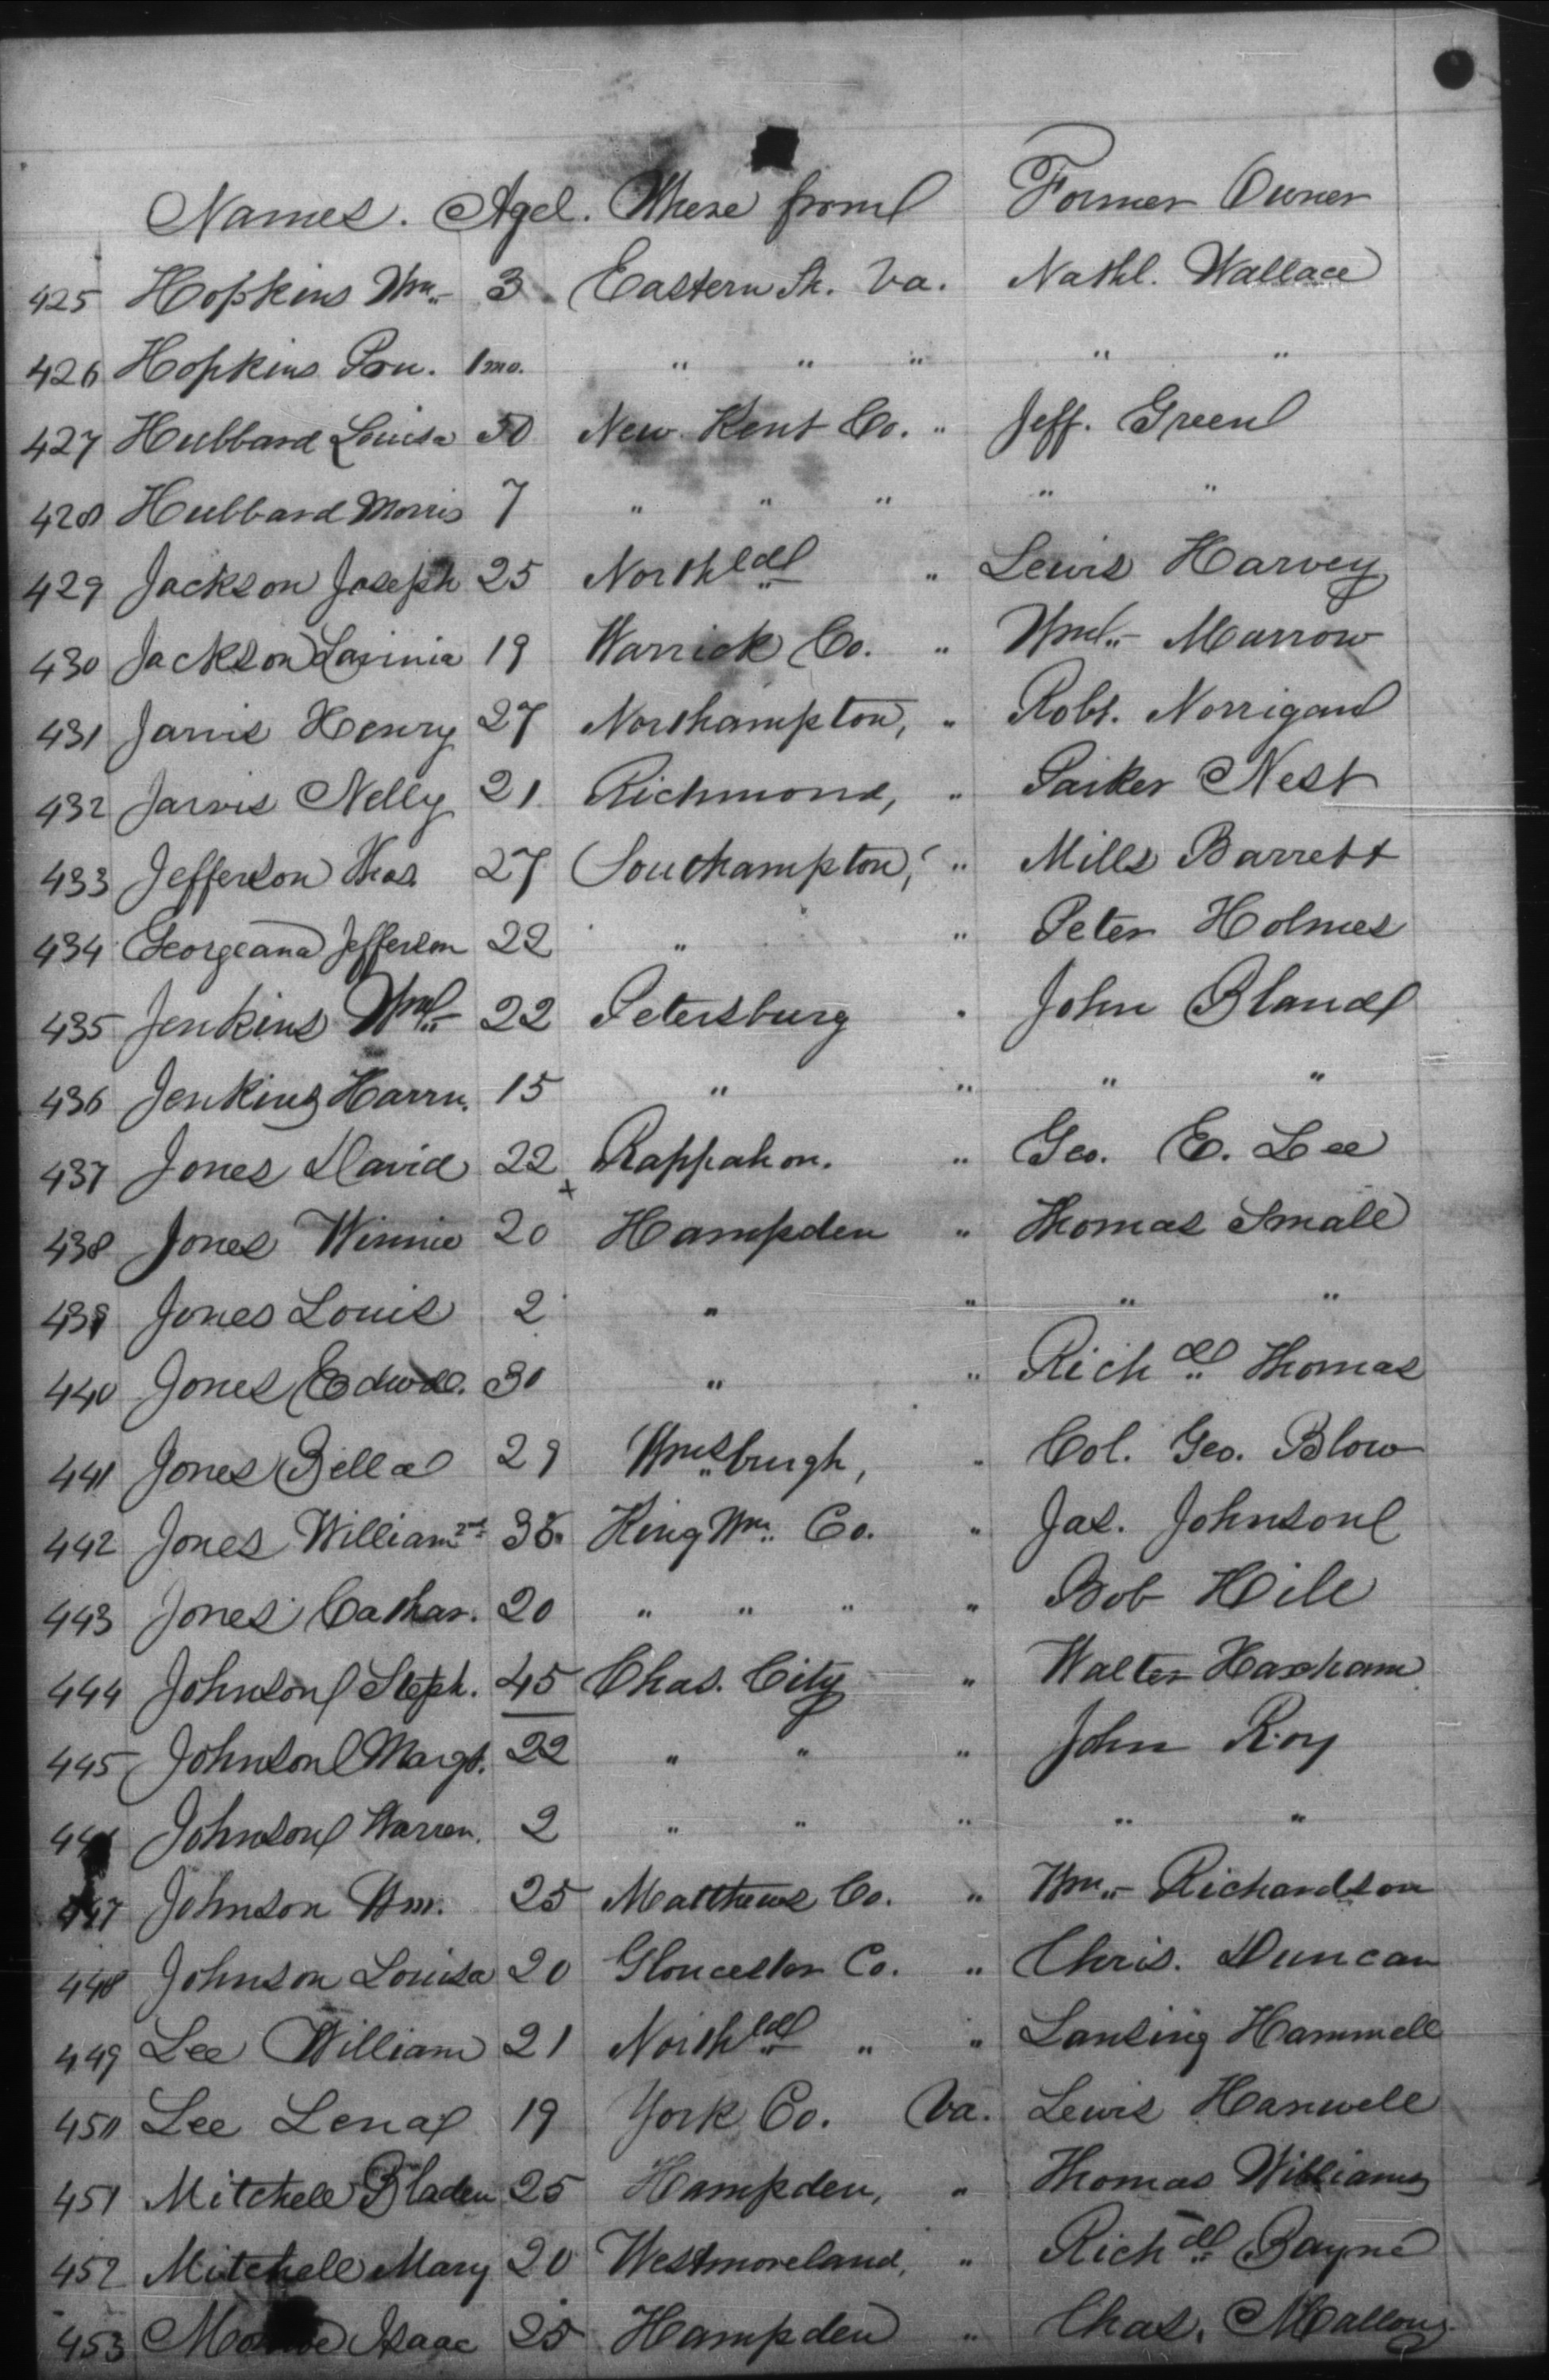 Names. Age. Where from Former Owner
425 Hopkins Wm. 3 Eastern Sh. Va. Nathl. Wallace
426 Hopkins Pru. 1 mo. " " " " "
427 Hubbard Louisa 50 New Kent Co. " Jeff. Green
428 Hubbard Morris 7 " " " " "
429 Jackson Joseph 25 Northld " Lewis Harvey
430 Jackson Lavinia 19 Warrick Co. " Wm. Marrow
431 Jarvis Henry 27 Northampton, " Robt. Norrigan
432 Jarvis Nelly 21 Richmond, " Parker Nest
433 Jefferson Thos. 27 Southampton, " Mills Barrett
434 Georgeana Jefferson 22 " " Peter Holmes
435 Jenkins Wm. 22 Petersburg " John Bland
436 Jenkins Harrn. 15 " " " "
437 Jones David 22 Rappahon. " Geo. E. Lee
438 Jones Winnie 20 Hampden " Thomas Small
439 Jones Louis 2 " " " "
440 Jones Edwd. 30 " " Richd Thomas
441 Jones Bella 29 Wmsburgh, " Col. Geo. Blow
442 Jones William 2nd King Wm. Co. " Jas. Johnson
443 Jones Cathar. 20 " " " " Bob Hill
444 Johnson Steph. 45 Chas. City " Walter Haxham
445 Johnson Margt. 22 " " " John Roy
446 Johnson Warren. 2 " " " " "
447 Johnson Wm. 25 Matthews Co. " Wm. Richardson
448 Johnson Louisa 20 Gloucester Co. " Chris. Duncan
449 Lee William 21 Northld " " Lansing Hammell
450 Lee Lena 19 York Co. Va. Lewis Harwell
451 Mitchell Bladen 25 Hampden, " Thomas Williams
452 Mitchell Mary 20 Westmoreland, " Richd Bayne
453 Isaac 25 Hampden " Chas. Mallory